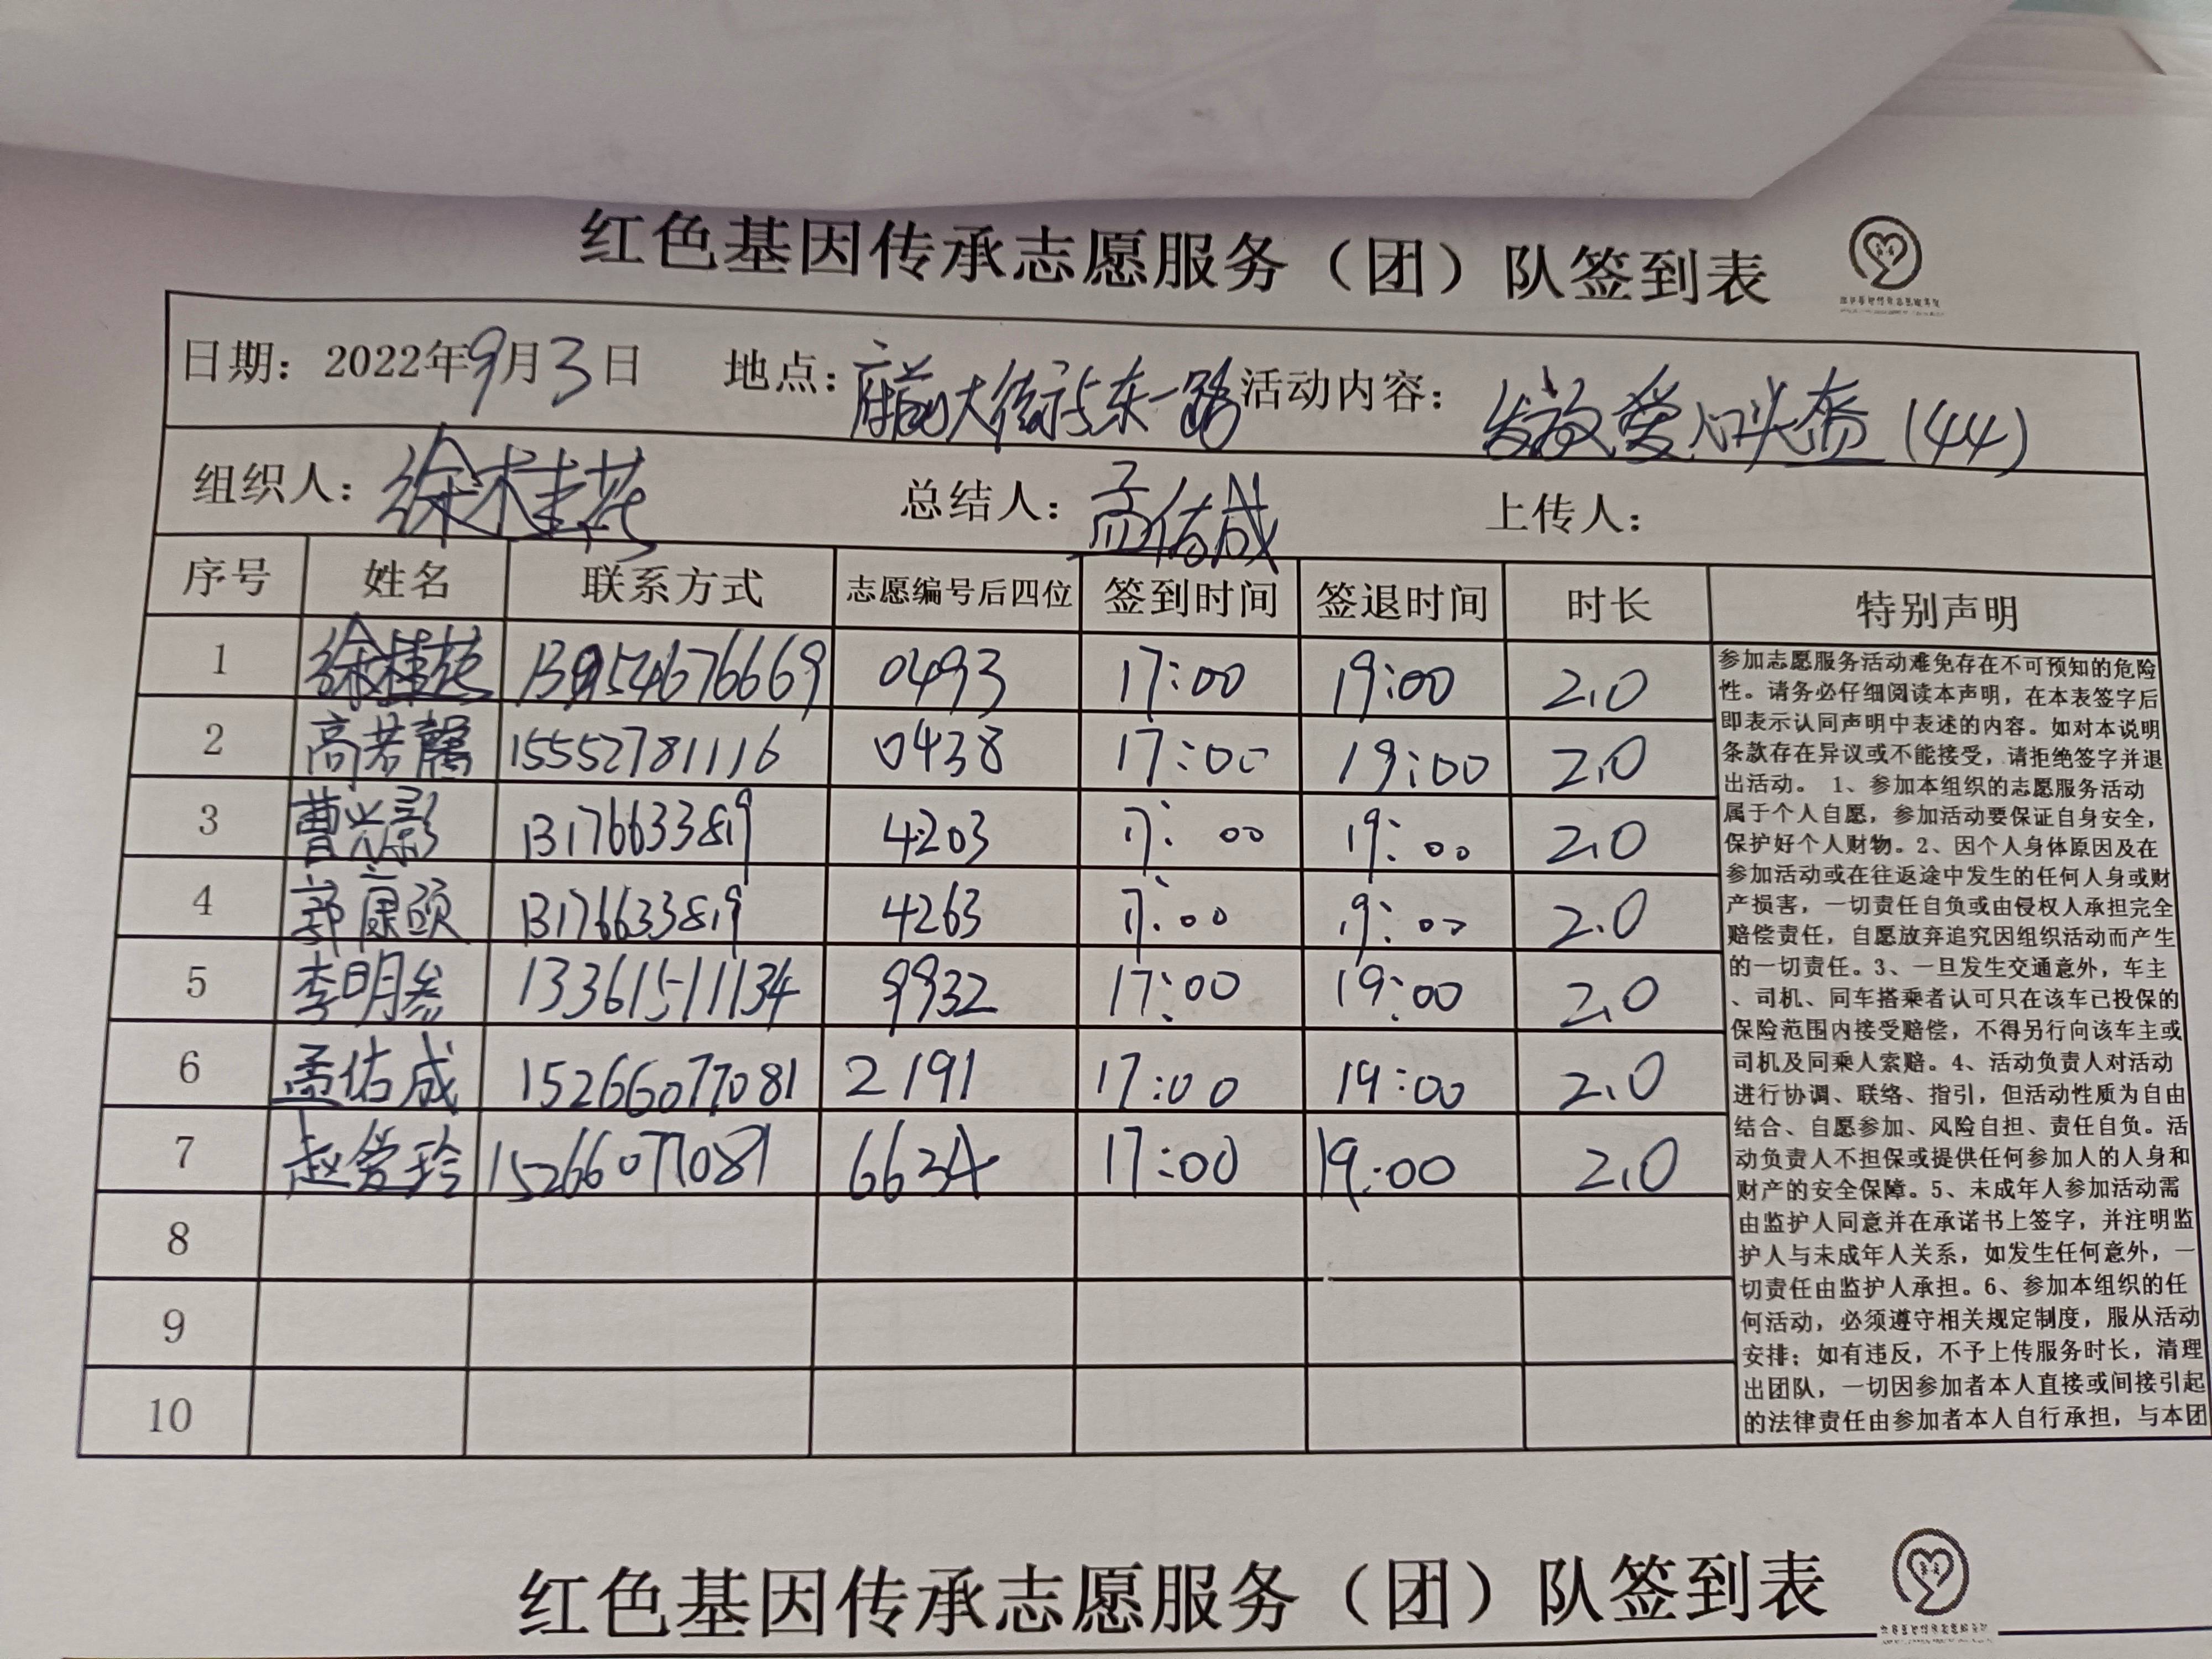 红色基因传承志愿服务（团）队签到表
日期：2022年9月3日 地点：府前大街与东一路 活动内容：发放爱心头盔（44）
组织人：徐桂花 总结人：孟佑成 上传人：
序号 姓名 联系方式 志愿编号后四位 签到时间 签退时间 时长 特别声明
1 徐桂花 13954676669 0493 17:00 19:00 2.0
2 高若馨 15552781116 0438 17:00 19:00 2.0
3 曹兴彩 13176633819 4203 17:00 19:00 2.0
4 郭康颐 13176633819 4263 17:00 19:00 2.0
5 李明参 13361511134 9932 17:00 19:00 2.0
6 孟佑成 15266077081 2191 17:00 19:00 2.0
7 赵爱玲 15266077081 6634 17:00 19:00 2.0
8
9
10
参加志愿服务活动难免存在不可预知的危险
性。请务必仔细阅读本声明，在本表签字后
即表示认同声明中表述的内容。如对本说明
条款存在异议或不能接受，请拒绝签字并退
出活动。 1、参加本组织的志愿服务活动
属于个人自愿，参加活动要保证自身安全，
保护好个人财物。2、因个人身体原因及在
参加活动或在往返途中发生的任何人身或财
产损害，一切责任自负或由侵权人承担完全
赔偿责任，自愿放弃追究因组织活动而产生
的一切责任。3、一旦发生交通意外，车主
、司机、同车搭乘者认可只在该车已投保的
保险范围内接受赔偿，不得另行向该车主或
司机及同乘人索赔。4、活动负责人对活动
进行协调、联络、指引，但活动性质为自由
结合、自愿参加、风险自担、责任自负。活
动负责人不担保或提供任何参加人的人身和
财产的安全保障。5、未成年人参加活动需
由监护人同意并在承诺书上签字，并注明监
护人与未成年人关系，如发生任何意外，一
切责任由监护人承担。6、参加本组织的任
何活动，必须遵守相关规定制度，服从活动
安排；如有违反，不予上传服务时长，清理
出团队，一切因参加者本人直接或间接引起
的法律责任由参加者本人自行承担，与本团
红色基因传承志愿服务（团）队签到表